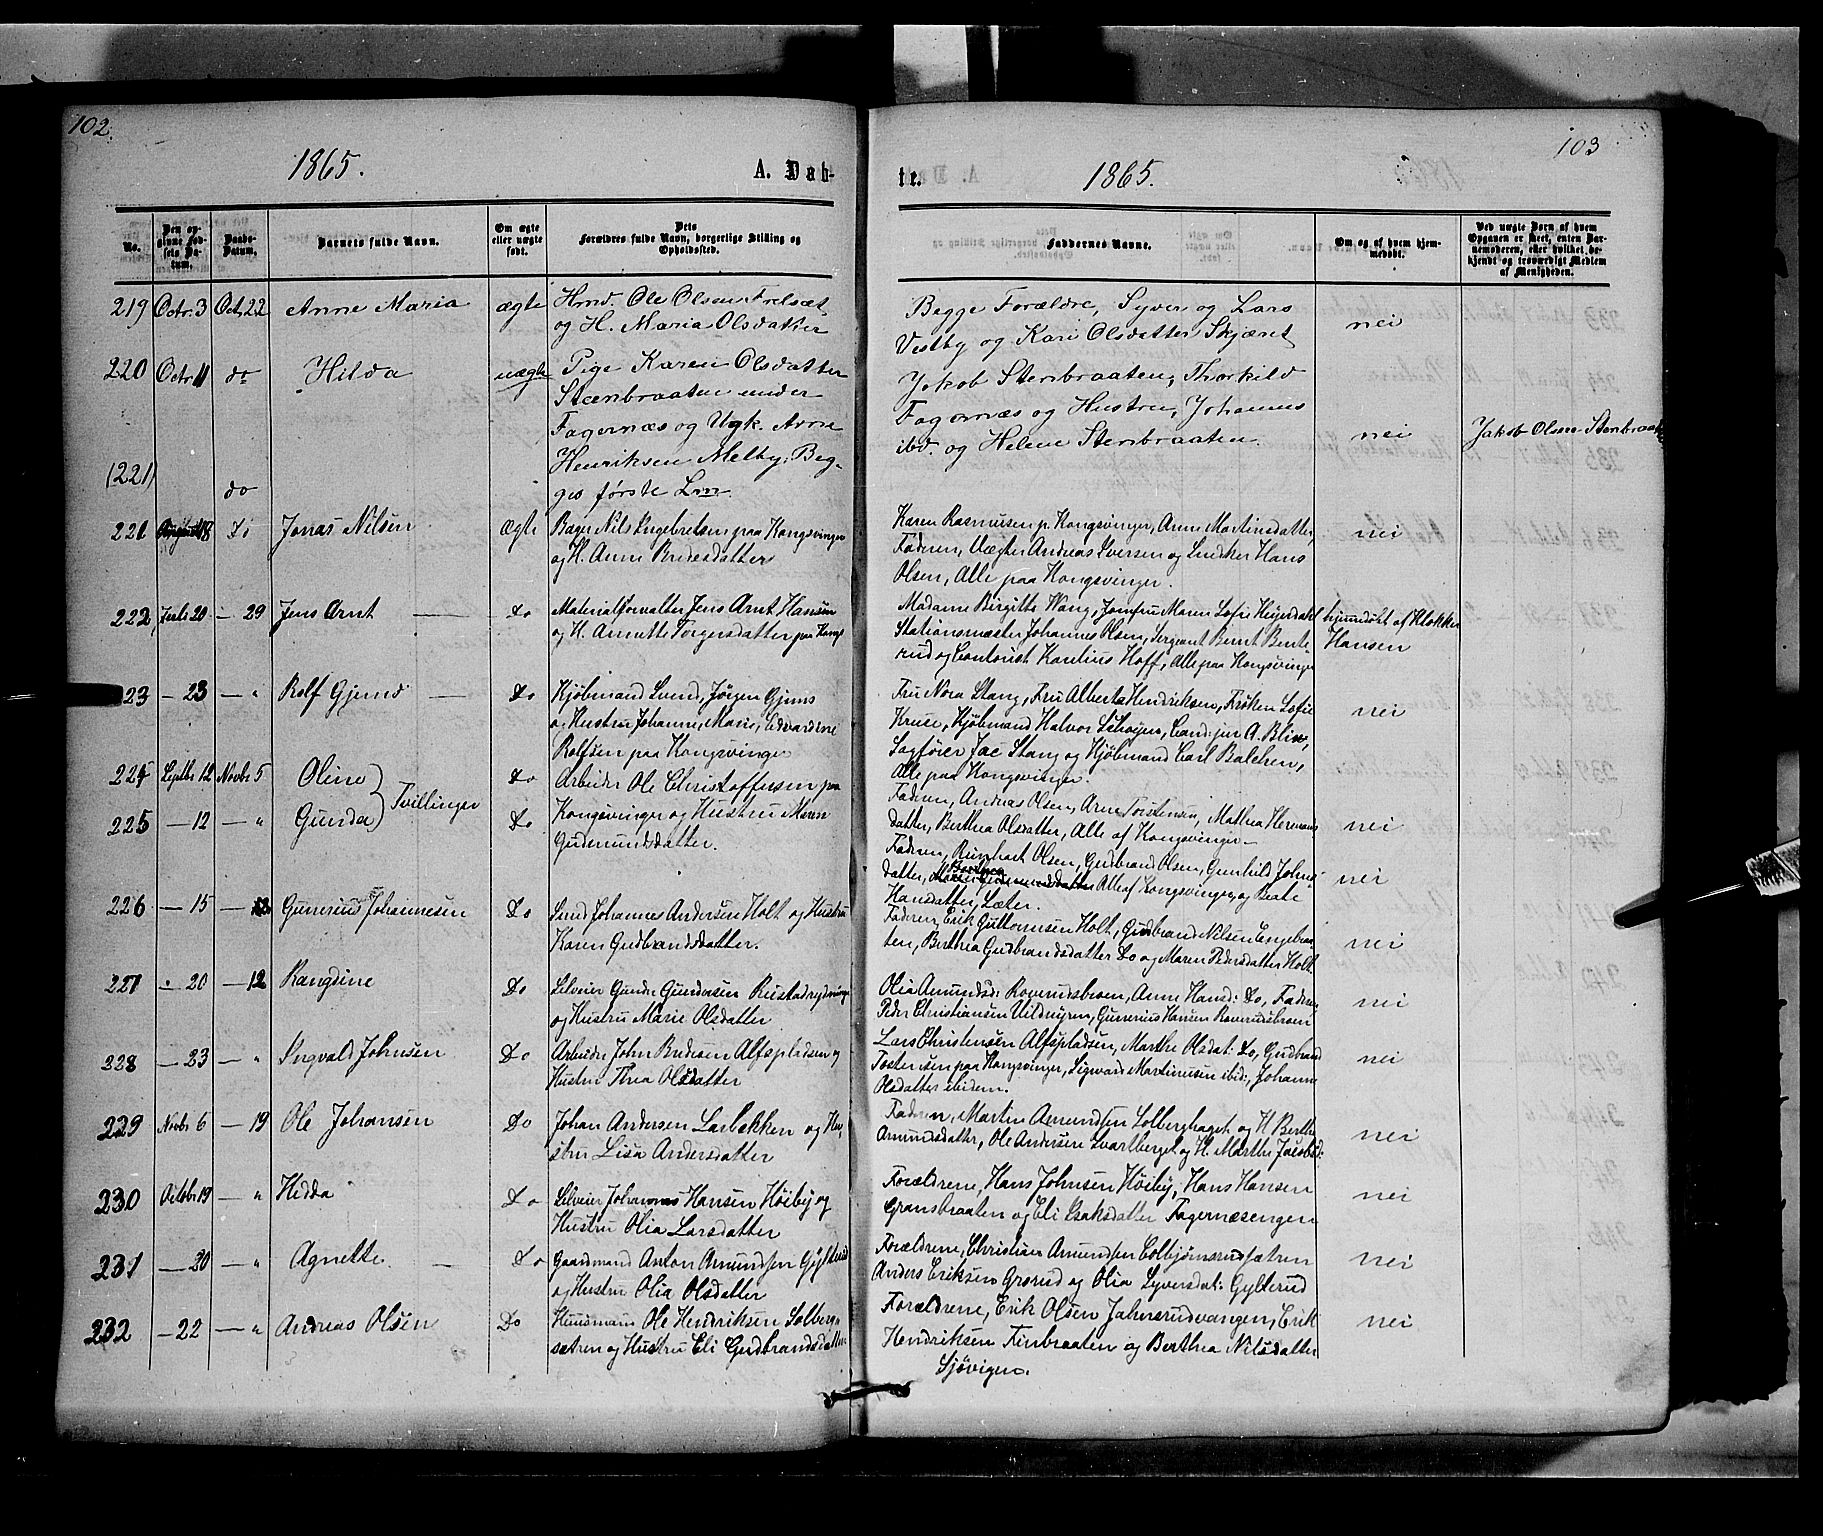 102.
1865.
A. Døb-
No.
Den op-
givne Fød-
sels Da-
tum.
Daabs-
Datum.
Barnets fulde Navn.
Om ægte
eller uægte
født.
Dets
Forældres fulde Navn, borgerlige Stilling og
Opholdssted.
219 Octr. 3 Oct. 22 Anne Maria ægte Hmd. Ole Olsen Frelsæt
og H. Maria Olsdatter
220 Octr. 11 do Hilda uægte Pige Karen Olsdatter
Steenbraaten under
Fagernæs og Ungk. Arne
Henriksen Melby; Beg-
(221) do ges første Lm
221 18 Do Jonas Nilsen Ægte Bager Nils Ingebretsen paa Kongsvinger
og H. Anne Bredesdatter
222 20 — 29 Jens Arnt — Do Materialforvalter Jens Arnt Hansen
og H. Annette Torgersdatter paa Kongs
223 — 23 — " Rolf Gjems — Do Kjøbmand Svend Jørgen Gjems
og Hustru Johanne Marie Edvardine
Rolfsen paa Kongsvinger
224 Septbr 12 Novbr 5 Oline Do Arbeider Ole Christoffersen paa
Tvillinger
225 — 12 — " Gunda Do Kongsvinger og Hustru Maren
Gudmundsdatter.
226 — 15 — 12 Gunerius Johannesen Do Johannes Andersen Holt og Hustru
Karen Gudbrandsdatter.
227 — 20 — 12 Rangdine Do Selveier Gunder Gundersen
og Hustru Marie Olsdatter
228 — 23 — " Ingvald Johnsen Do Arbeider John Bredesen Alfspladsen og
Hustru Thea Olsdatter
229 Novbr 6 — 19 Ole Johansen Do Johan Andersen Larbekken og Hu-
stru Lisa Andersdatter
230 Octobr 19 — " Hedda Do Selveier Johannes Hansen Høiby og
Hustru Olia Larsdatter
231 — 20 — " Agnethe — Do Gaardmand Anton Amundsen Gylterud
og Hustru Olia Olsdatter
232 — 22 — " Andreas Olsen Do Huusmand Ole Hendriksen Solberg-
sætren og Hustru Eli Gudbrandsdatter
103
te.
1865.
Faddernes Navne.
Om og af hvem hjem-
medøbt.
Ved uægte Børn af hvem
Opgaven er skeet, enten Bar-
nemoderen, eller hvilket be-
kjendt og troværdigt Medlem
af Menigheden.
Begge Forældre, Syver og Lars
Vestby og Kari Olsdatter Skjæret nei
Jakob Stenbraaten, Thorkild
Fagernæs og Hustru, Johannes
ibd. og Helene Stenbraaten. nei Jakob Olsen Stenbraaten
Karen Rasmussen p. Kongsvinger, Anne Martinsdatter, nei
Fadren, Andreas Iversen og Hans
Olsen, Alle paa Kongsvinger.
Madame Birgitte Wang, Jomfru Maren Sofie Heyerdahl hjemdøbt af Klokker
Stationsmester Johannes Olsen, Sergeant Bernt Bente- Hansen
rud og Contorist Hoff, Alle paa Kongsvinger
Fru Nora Stang, Fru Alberta Hendriksen, Frøken Sofie
Kruse, Kjøbmand Halvor Schøyen, Cand: jur A. Blix, nei
Sagfører Jac Stang og Kjøbmand Carl Balchen,
Alle paa Kongsvinger.
Fadren, Andreas Olsen, Arne Torstensen, Mathea Hermans
datter, Berthea Olsdatter, Alle af Kongsvinger — nei
Fadren, Olsen, Gudbrand Olsen, Gunhild Johns-
datter, Alle af Kongsvinger, og Beate nei
Hansdatter, Sæter.
Fadren, Erik Guttormsen Holt, Gudbrand Nilsen Engebraa-
ten, Berthea Gudbrandsdatter Do og Maren Pedersdatter Holt nei
Olia Amundsd: Roverudsbroen, Anne Hansd: Do, Fadren, nei
Peder Christiansen, Gunerius Hansen Roverudsbroen
Lars Christensen Alfspladsen, Marthe Olsdat: Do, Gudbrand nei
Tostensen paa Kongsvinger, Sigvard Martinusen ibid:, Johanne
Olsdatter ibidem.
Fadren, Martin Amundsen Solberghaget og H. Berthe
Amundsdatter, Ole Andersen Svartberget og H. Marthe Jacobsd: nei
Forældrene, Hans Johnsen Høiby, Hans Hansen nei
Gransbraaten og Eli Isaksdatter Fagernæsengen
Forældrene, Christian Amundsen Colbjørnsrudsætren nei
Anders Eriksen Grørud og Olia Syversdat: Gylterud
Forældrene, Erik Olsen Jahnsrudvangen, Erik nei
Hendriksen Finbraaten og Berthea Nilsdatter
Sjøvigen.